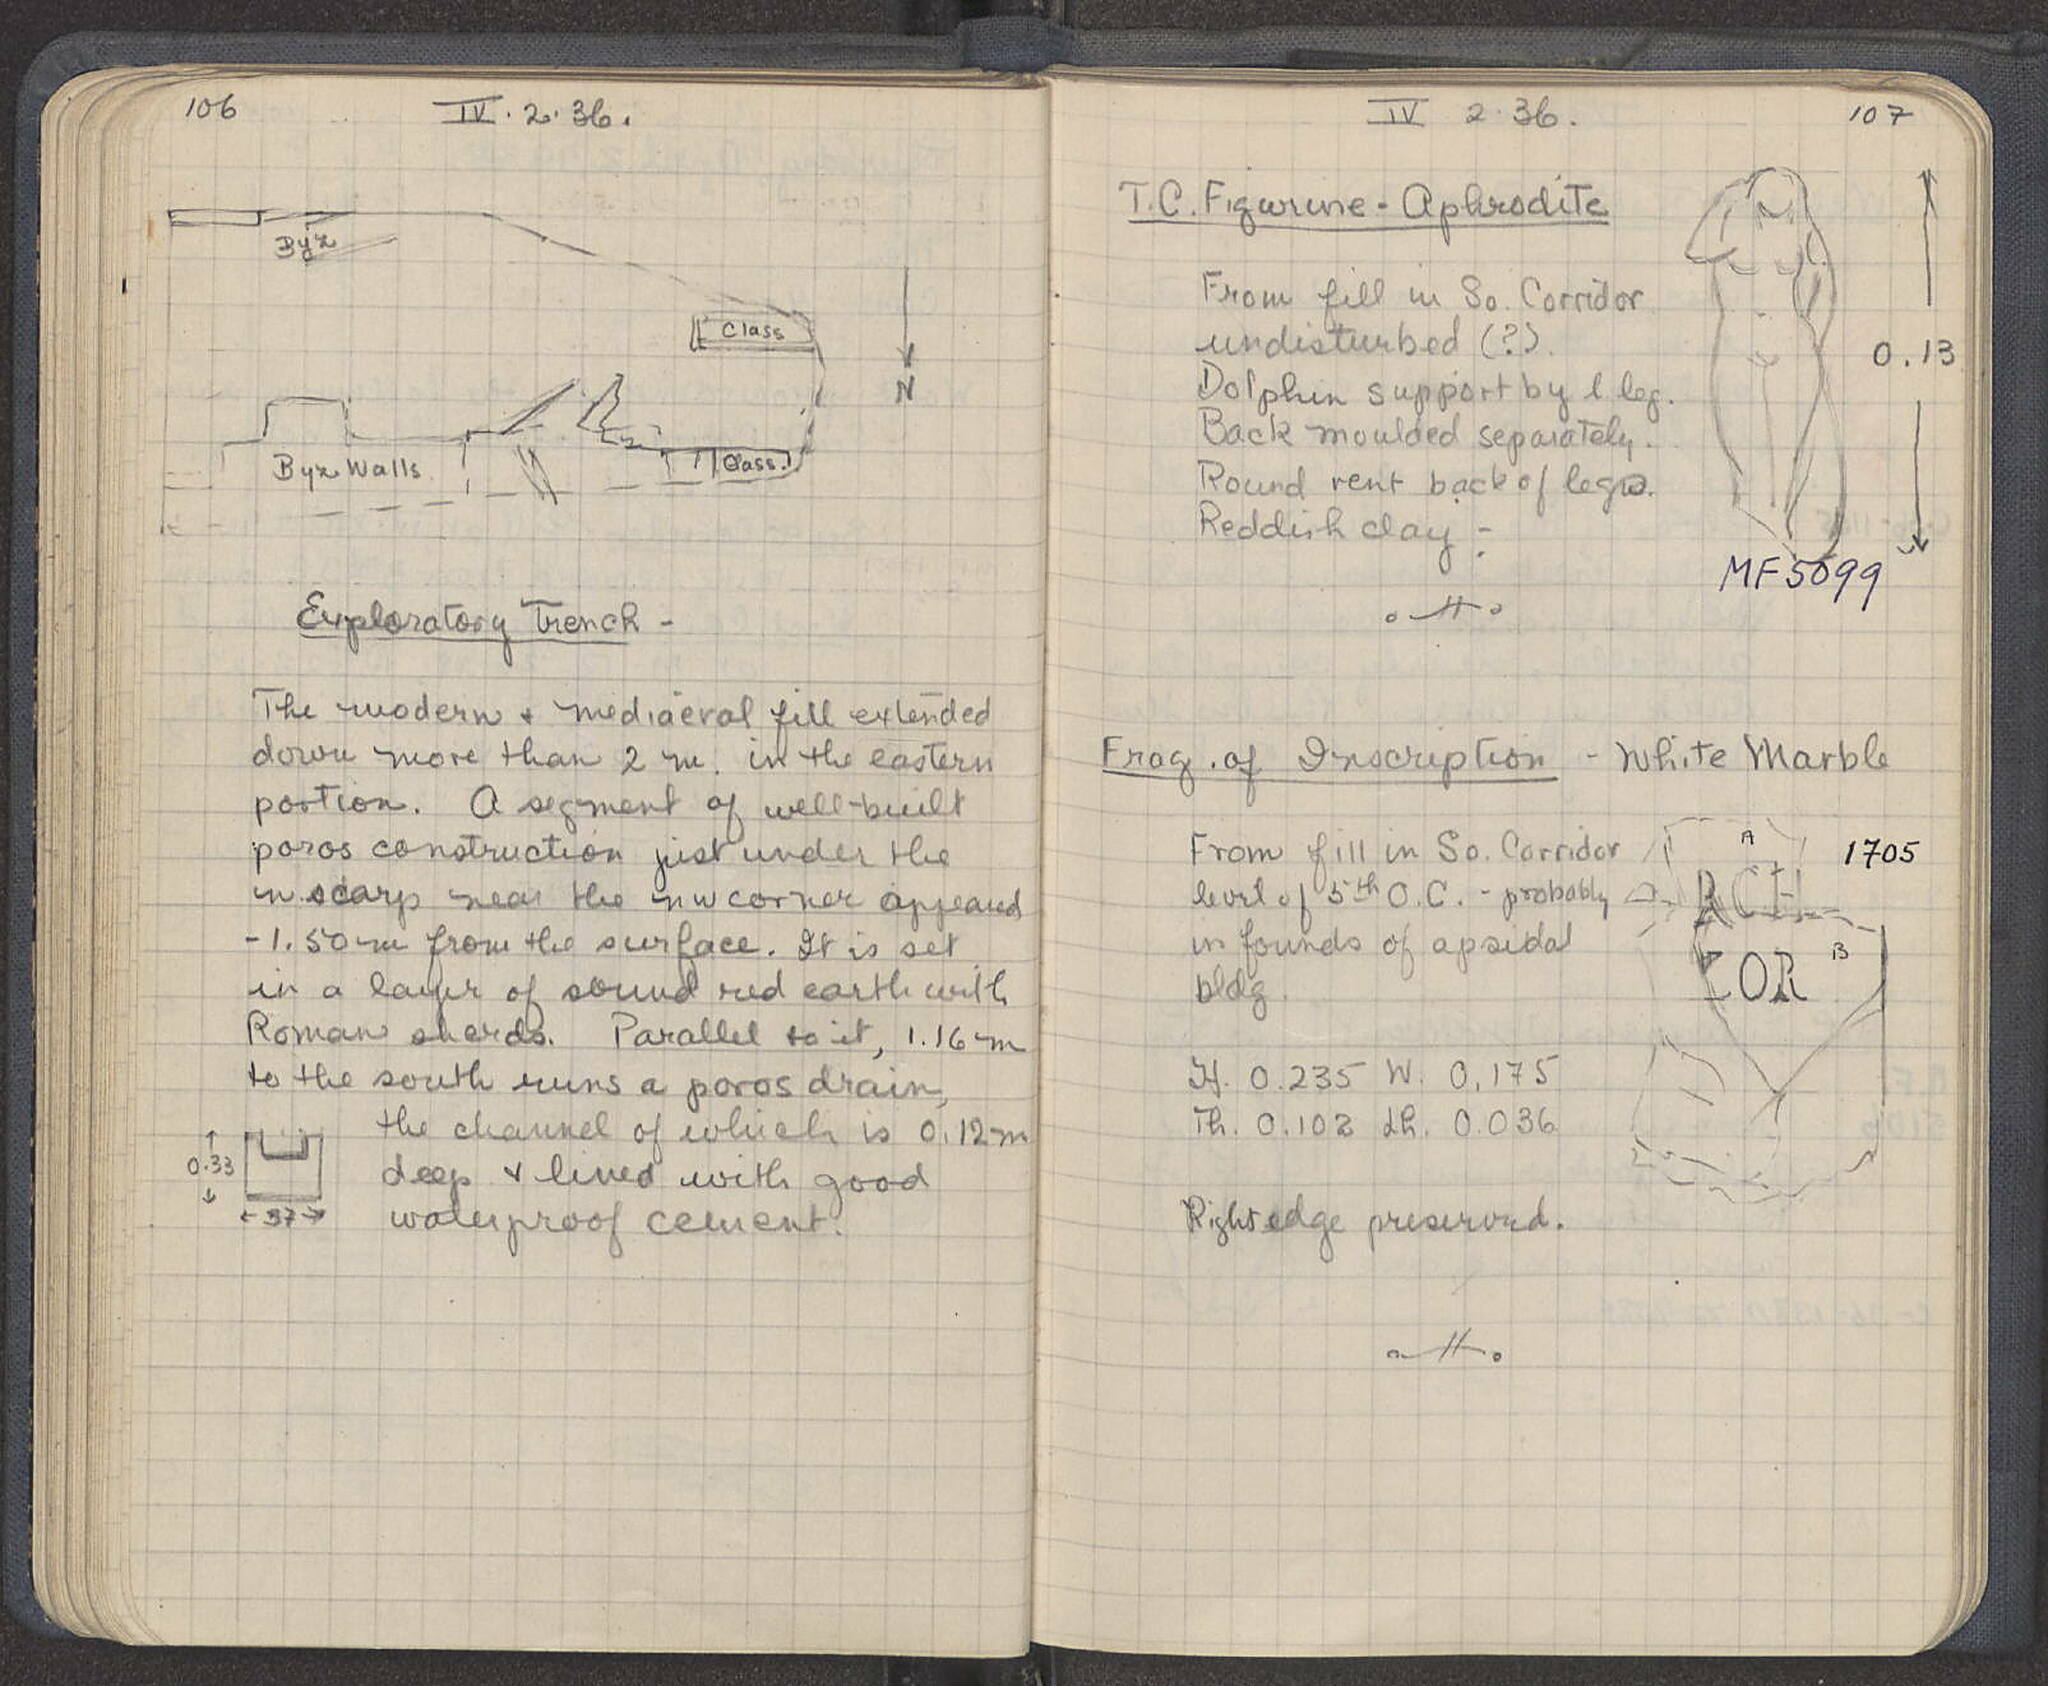 106
IV. 2. 36.
Byz
Class
N
Byz Walls
Class.
Exploratory Trench -
The modern + mediaeval fill extended
down more than 2 m. in the eastern
portion. A segment of well-built
poros construction just under the
n scarp near the nw corner appeared
-1.50 m from the surface. It is set
in a layer of sound red earth with
Roman sherds. Parallel to it, 1.16 m
to the south runs a poros drain,
the channel of which is 0.12 m
deep + lined with good
waterproof cement.
0.33
37
IV 2. 36.
107
T.C. Figurine - Aphrodite
From fill in So. Corridor
undisturbed (?).
Dolphin support by l leg.
Back moulded separately.
Round vent back of legs.
Reddish clay -
0.13
MF5099
Frag. of Inscription - White Marble
From fill in So. Corridor
level of 5th O.C. - probably
in founds of apsidal
bldg.
A
1705
RCH
B
COR
H. 0.235 W. 0,175
Th. 0.102 Lh. 0.036
Right edge preserved.